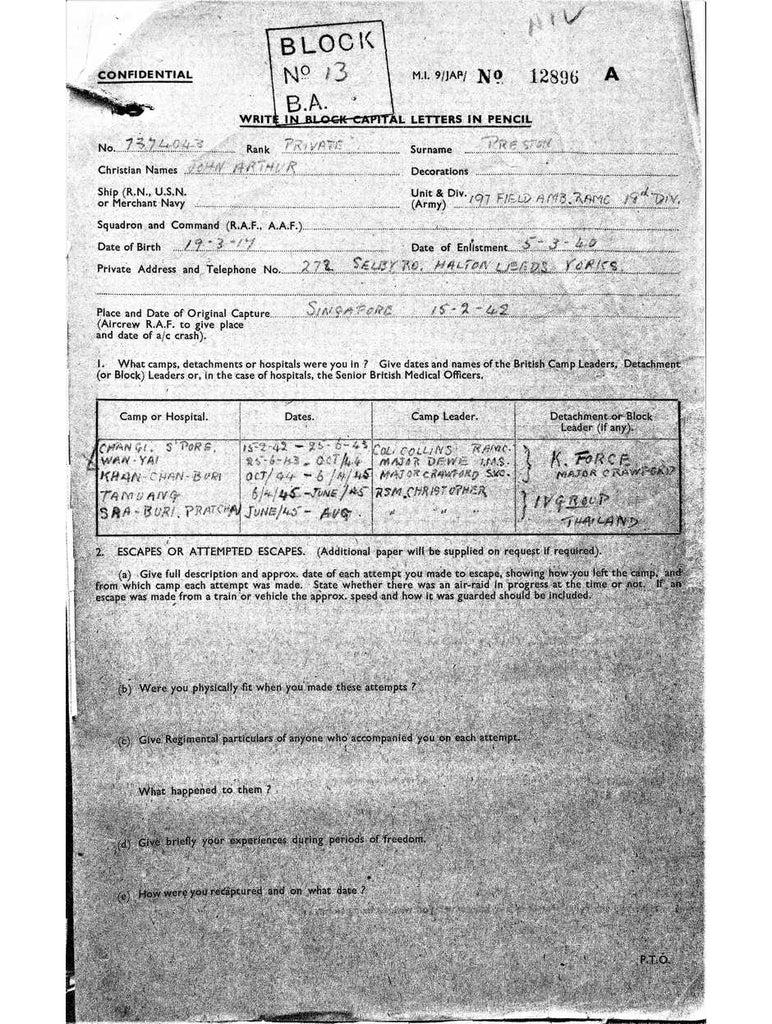 NIL
BLOCK
Nº 13
B.A.
CONFIDENTIAL
M.I. 9/JAP/ Nº 12896 A
WRITE IN BLOCK CAPITAL LETTERS IN PENCIL
No. 7374043 Rank PRIVATE Surname PRESTON
Christian Names JOHN ARTHUR Decorations
Ship (R.N., U.S.N. or Merchant Navy
Unit & Div. (Army) 197 FIELD AMB. RAMC 18th DIV.
Squadron and Command (R.A.F., A.A.F.)
Date of Birth 19-3-17 Date of Enlistment 5-3-40
Private Address and Telephone No. 272 SELBY RD. HALTON LEEDS YORKS.
Place and Date of Original Capture SINGAPORE 15-2-42
(Aircrew R.A.F. to give place
and date of a/c crash).
1. What camps, detachments or hospitals were you in ? Give dates and names of the British Camp Leaders, Detachment
(or Block) Leaders or, in the case of hospitals, the Senior British Medical Officers.
Camp or Hospital. Dates. Camp Leader. Detachment or Block
Leader (if any).
CHANGI. S'PORE. 15-2-42 - 25-6-43 COL. COLLINS RAMC.
WAN-YAI 25-6-43 . OCT/44 MAJOR DEWE I.M.S. } K. FORCE
KHAN-CHAN-BURI OCT/44 - 6/4/45 MAJOR CRAWFORD MAJOR CRAWFORD
TAMUANG 6/4/45 - JUNE/45 RSM. CHRISTOPHER } IV GROUP
SRA-BURI. PRATCHAI JUNE/45 - AUG. " " " THAILAND
2. ESCAPES OR ATTEMPTED ESCAPES. (Additional paper will be supplied on request if required).
(a) Give full description and approx. date of each attempt you made to escape, showing how you left the camp, and
from which camp each attempt was made. State whether there was an air-raid in progress at the time or not. If an
escape was made from a train or vehicle the approx. speed and how it was guarded should be included.
(b) Were you physically fit when you made these attempts ?
(c) Give Regimental particulars of anyone who accompanied you on each attempt.
What happened to them ?
(d) Give briefly your experiences during periods of freedom.
(e) How were you recaptured and on what date ?
P.T.O.